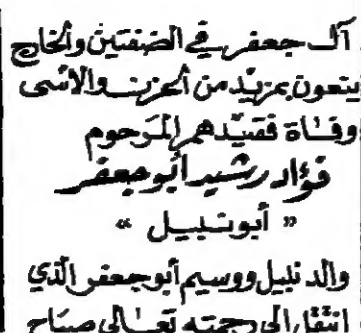 آل جعفر في الضفتين والخارج
ينعون بمزيد من الحزن والاسى
وفاة فقيدهم المرحوم
فؤاد رشيد أبو جعفر
" أبو نبيل "
والد نبيل ووسيم أبو جعفر الذي
انتقل الى رحمته تعالى صباح